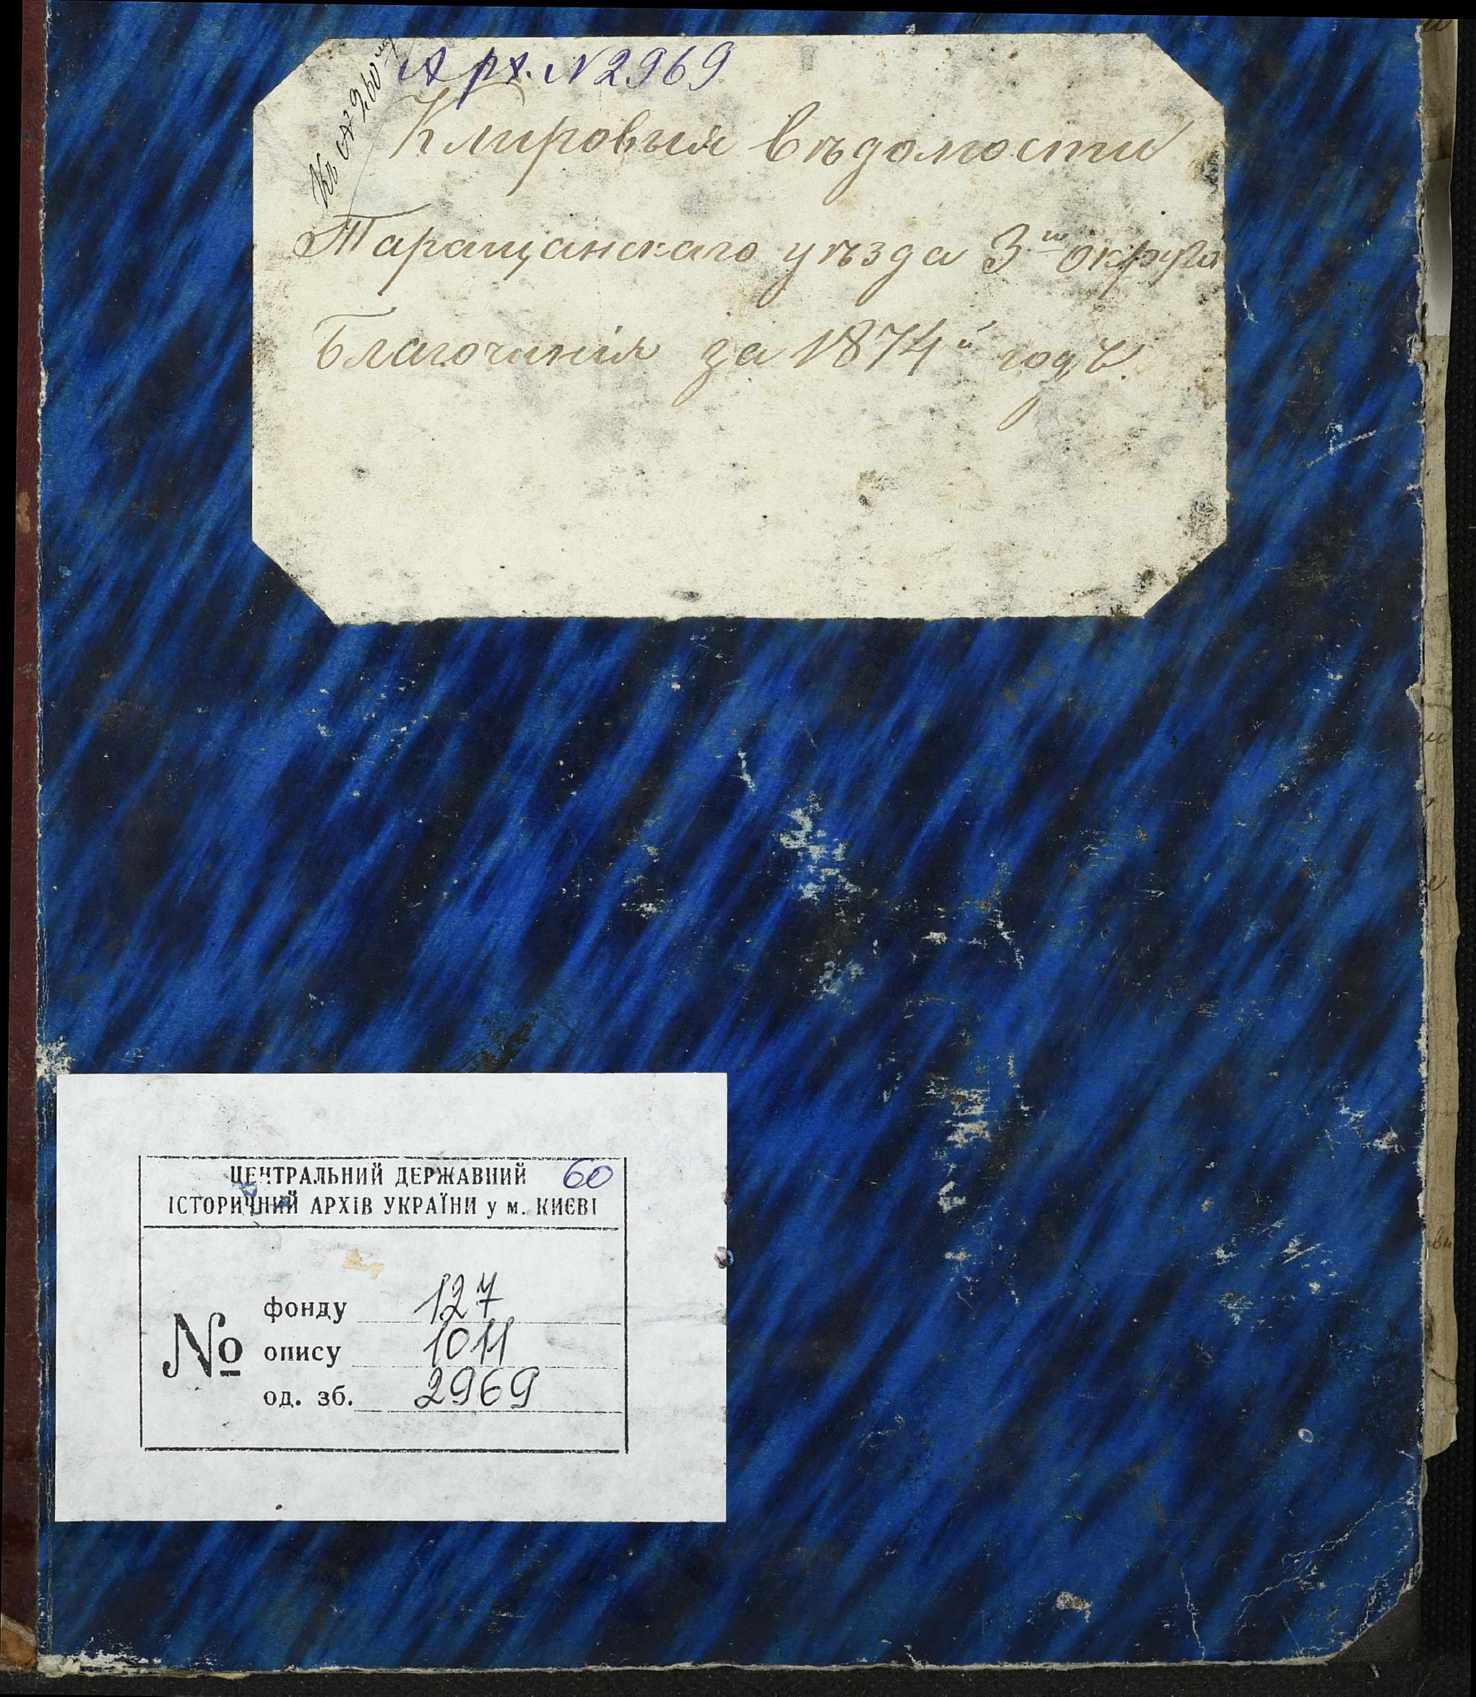 Арх. №2969
Къ № 960
Клировыя вѣдомости
Таращанскаго уѣзда 3го округа
Благочинія за 1874й годъ.
ЦЕНТРАЛЬНИЙ ДЕРЖАВНИЙ 60
ІСТОРИЧНИЙ АРХІВ УКРАЇНИ у м. КИЄВІ
№
фонду 127
опису 1011
од. зб. 2969